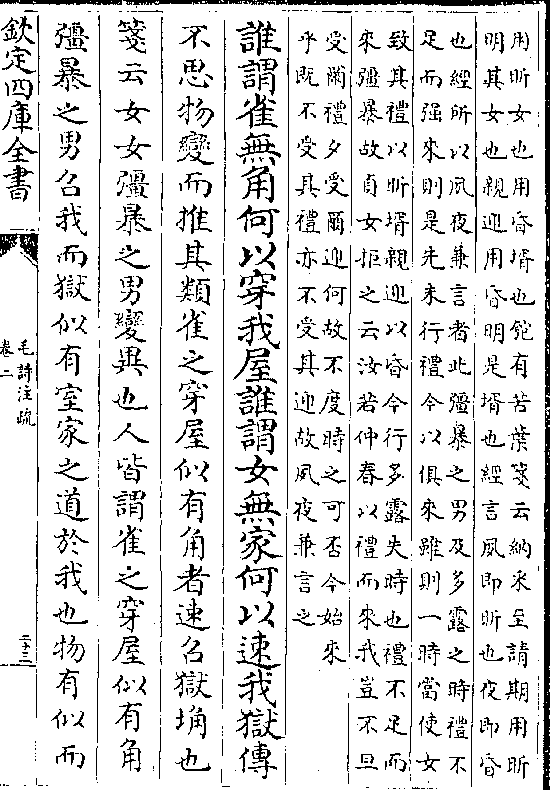 用昕女也用昏壻也匏有苦葉箋云納采至請期用昕
明其女也親迎用昏明是壻也經言夙即昕也夜即昏
也經所以夙夜兼言者此彊暴之男及多露之時禮不
足而强來則是先未行禮今以俱來雖則一時當使女
致其禮以昕壻親迎以昏今行多露失時也禮不足而
來彊暴故貞女拒之云汝若仲春以禮而來我豈不旦
受爾禮夕受爾迎何故不度時之可否今始來
乎既不受其禮亦不受其迎故夙夜兼言之
誰謂雀無角何以穿我屋誰謂女無家何以速我獄傳
不思物變而推其類雀之穿屋似有角者速召獄埆也
箋云女女彊暴之男變異也人皆謂雀之穿屋似有角
彊暴之男召我而獄似有室家之道於我也物有似而
欽定四庫全書
毛詩注疏
卷二